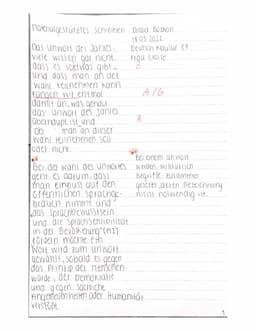 Materialgestütztes Schreiben
18.05.2022
Das Unwort des Jahres.
viele wissen gar nicht
dass es sowas gibt
und dass man an der
Wahl teilnehmen kann
Fangen wir erstmal A/G
damit an, was genau
das Unwort des Jahres
überhaupt ist und R
Ob man an dieser
Wahl teilnehmen soll
oder nicht.
Bei der Wahl des Unwortes
geht es darum, dass
man Einfluss auf den
öffentlichen Sprachge-
brauch nimmt und
das Sprachbewusstsein
und die Sprachsensibilität
in der Bevölkerung
fördern möchte. Ein
Wort wird zum Unwort
gewählt, sobald es gegen
das Prinzip der Menschen-
würde, der Demokratie
und gegen sachliche
oder Humanität
verstößt.
Bei einem Unwort
werden
Begriffe
deren Bezeichnung
nicht notwendig ist.
1